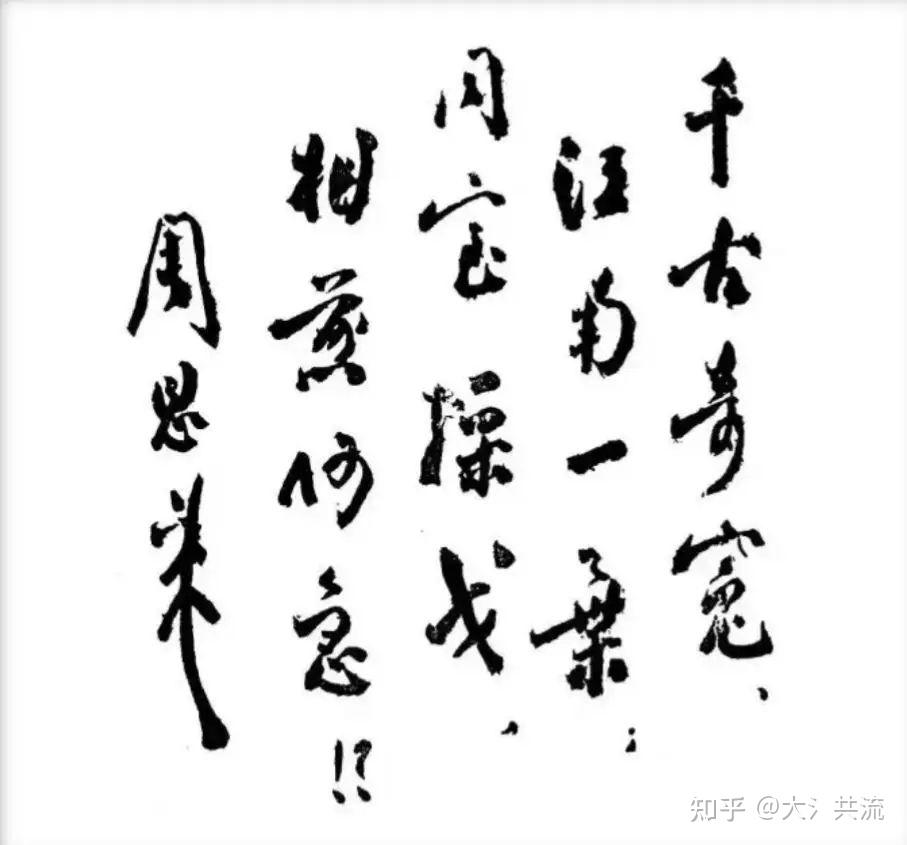 千古奇冤、
江南一葉；
同室操戈、
相煎何急!?
周恩來
知乎 @大氵共流